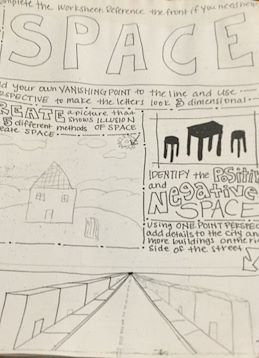 complete the worksheet. Reference the front if you need help
SPACE
Add your own VANISHING POINT to the line and use
PERSPECTIVE to make the letters look 3 dimensional
CREATE a picture that
shows ILLUSION
3 different methods of SPACE
create SPACE
IDENTIFY the Positive
and Negative
SPACE
Using ONE POINT PERSPECTIVE
add details to the city and
more buildings on the right
side of the street